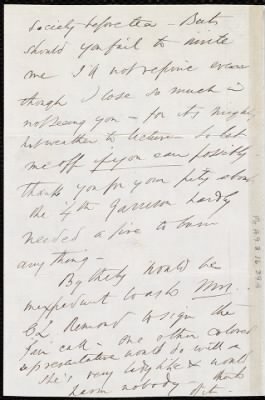 society before tea - But
should you fail to invite
me I'll not repine even
though I lose so much in
not seeing you - for it's mighty
hot weather to lecture So let
me off if you can possibly
thank you for your pity about
the 4th Garrison hardly
needed a fire to burn
anything -
By the by would it be
inexpedient to ask Mrs.
CL Remond to sign the
Fair call - one other colored
representative would do with a
She's very ladylike & would
harm nobody - think